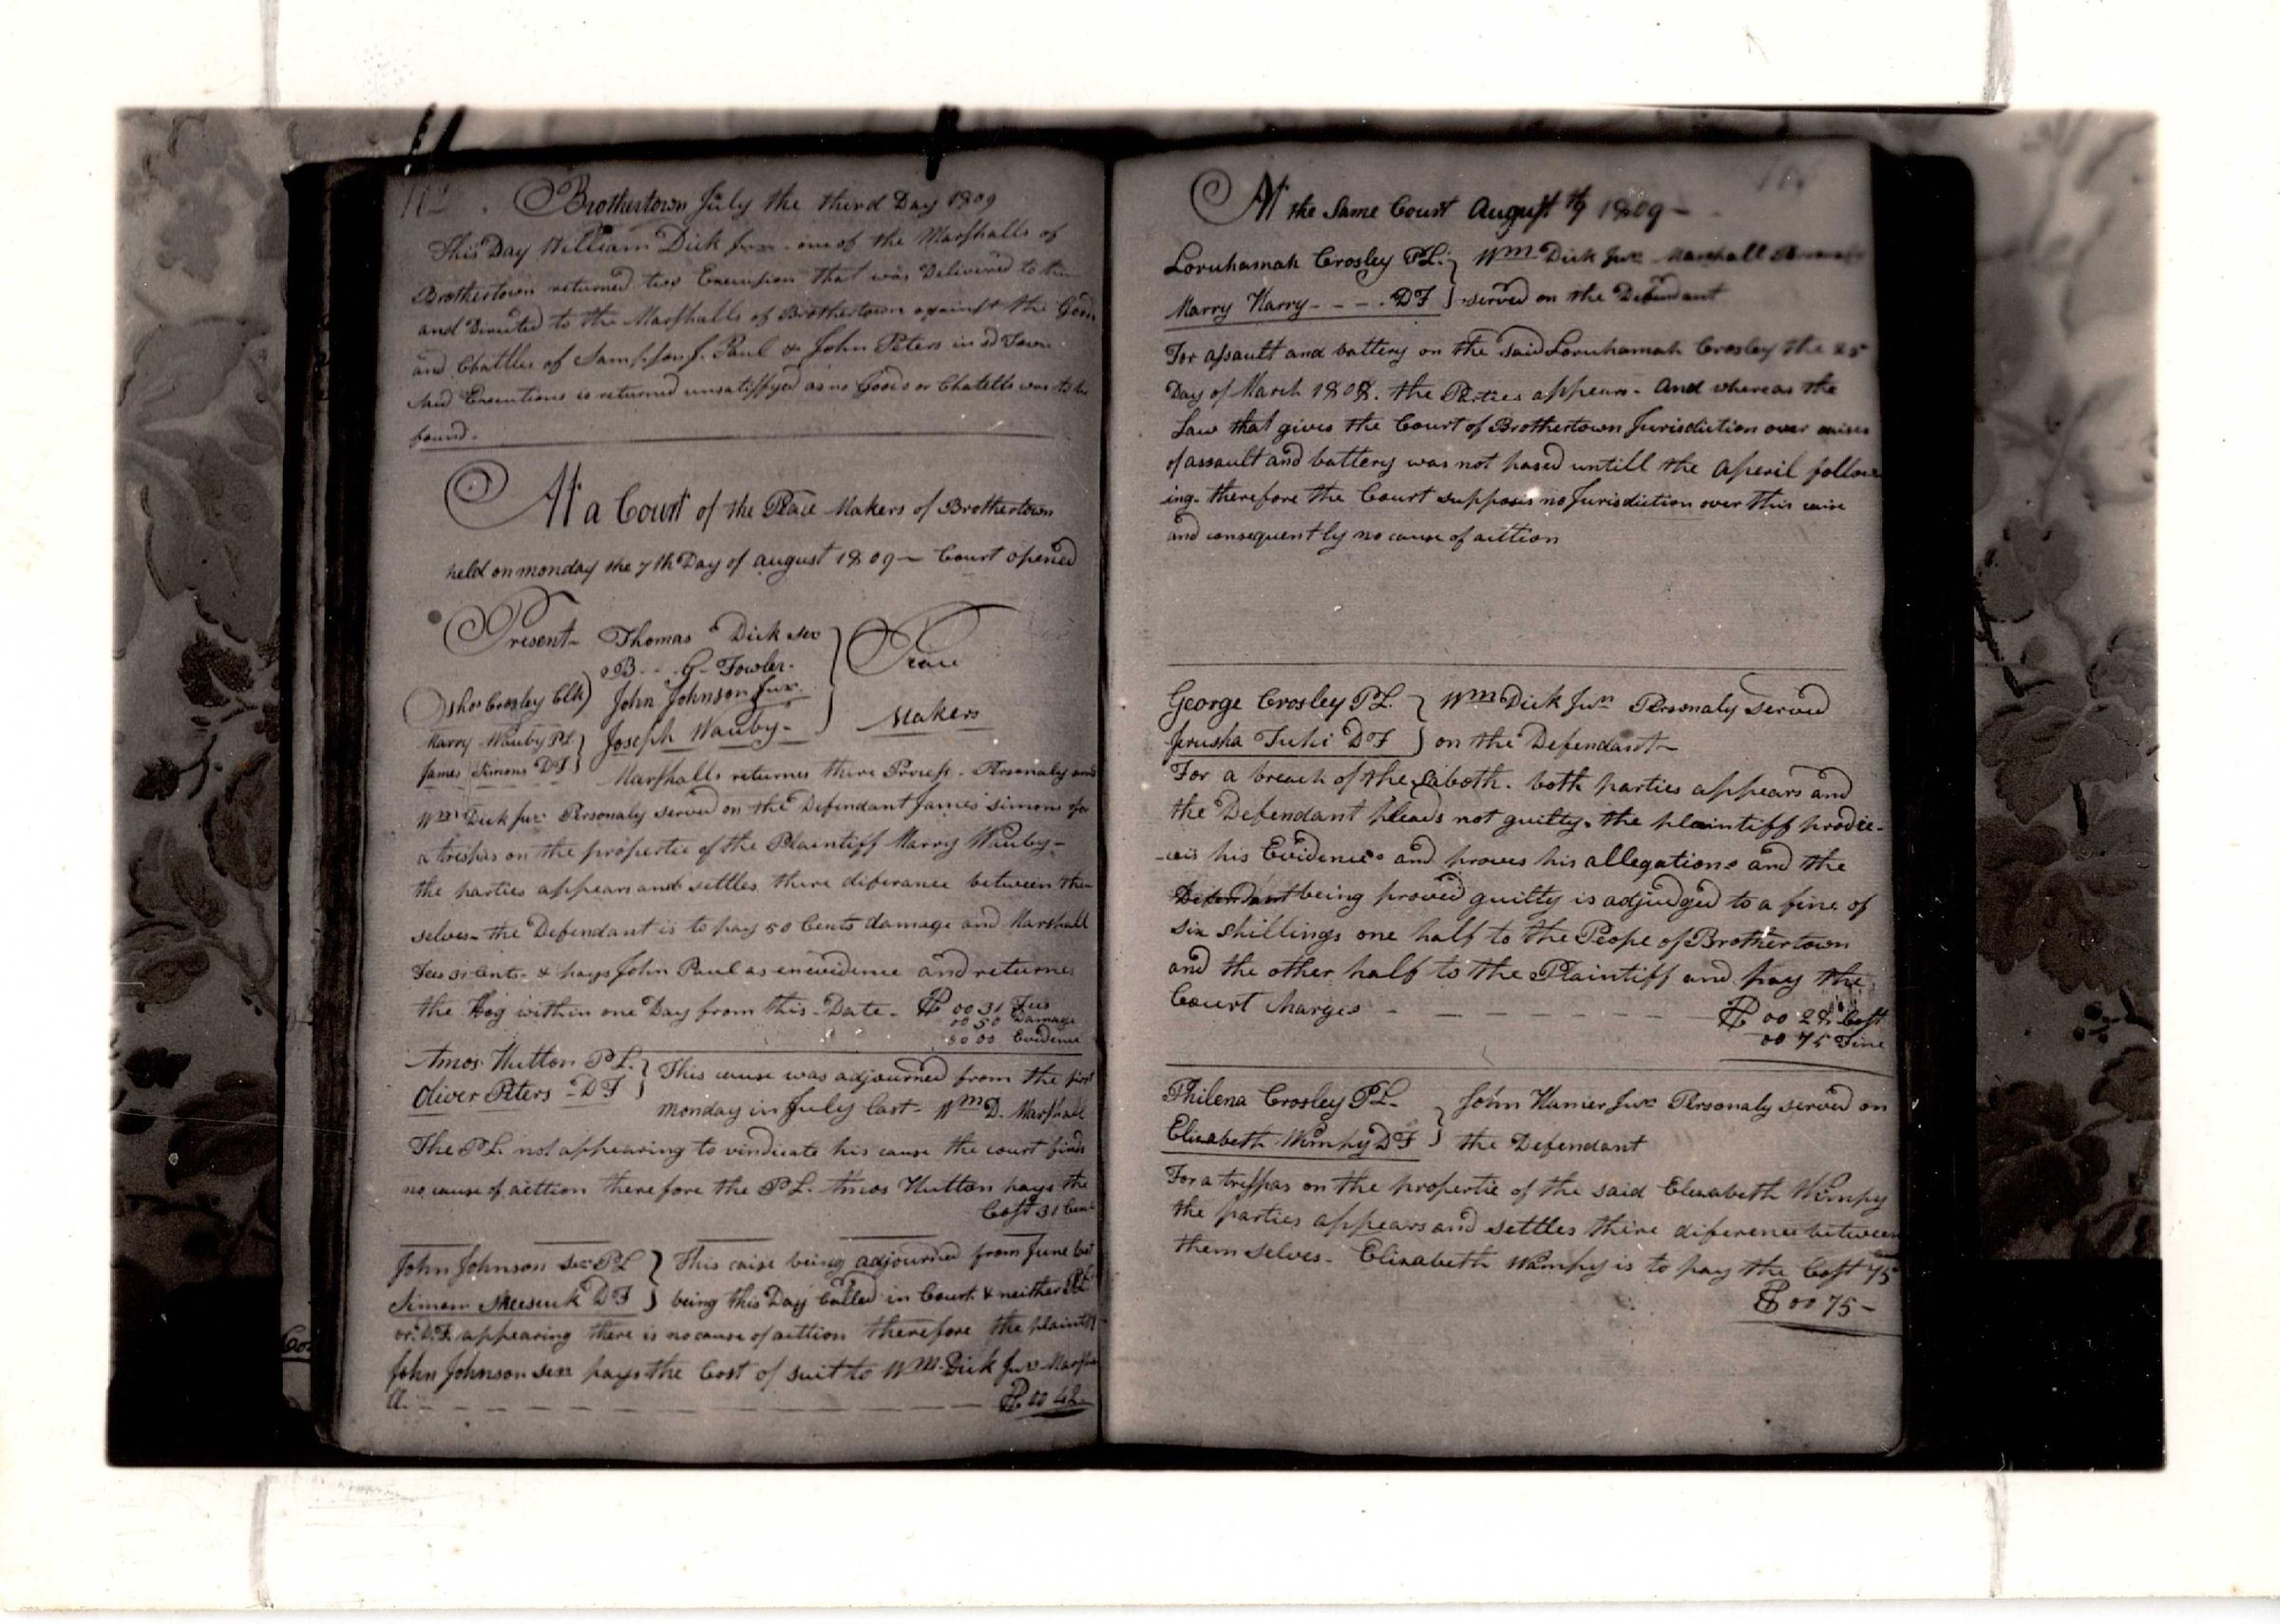 Brothertown July the third Day 1809
This Day William Dick Junr. one of the Marshalls of
Brothertown returned two Execusion that was Delivered to him
and Directed to the Marshalls of Brothertown against the Goods
and Chattles of Sampson J. Paul & John Peters in sd Town
said Executions is returned unsatisfyed as no Goods or Chatells was to be
found.
At a Court of the Peace Makers of Brothertown
held on monday the 7th Day of august 1809 - Court opened
Present - Thomas Dick ser
B. G. Fowler.
John Johnson Jur.
Joseph Wauby -
Peace
Makers
Crosley Clk
Marry Wauby PL
James Simons DF
Marshalls returnes there Process - Personaly and
Wm Dick Jur Personaly served on the Defendant James Simons for
a trespas on the propertie of the Plaintiff Marry Wauby -
the parties appears and settles there diferance between them
selves - the Defendant is to pay 50 Cents damage and Marshall
Fees 31 Cents - & pays John Paul as an evidence and returnes
the Hog within one Day from this Date - 00 31 Fees
00 50 Damage
00 00 Evidence
Amos Hutton PL.
Oliver Peters - DF
This cause was adjourned from the first
monday in July last - Wm D. Marshall
The PL. not appearing to vindicate his cause the court finds
no cause of acttion therefore the PL. Amos Hutton pays the
Cost 31 Cents
John Johnson Ser PL
DF
This caise being adjourned from June last
being this Day Called in Court & neither PL
or DF. appearing there is no cause of acttion therefore the plaintiff
John Johnson ser pays the Cost of suit to Wm. Dick Jur Marsha
ll. 00 42
At the Same Court August th 7 1809 -
Loruhamah Crosley PL.
Marry Harry - - - . DF
Wm. Dick Jur. Marshall
served on the Defendant
For assault and battery on the said Loruhamah Crosley the 25
Day of March 1808. the Parties appears - And whereas the
Law that gives the Court of Brothertown Jurisdiction over caises
of assault and battery was not pased untill the Aperil follow
ing - therefore the Court supposis no Jurisdiction over this caise
and consequently no cause of acttion
George Crosley PL.
Jerusha Tuhi DF
Wm Dick Jun Personaly Served
on the Defendant -
For a breach of the Saboth. both parties appears and
the Defendant pleads not guilty. the plaintiff produ-
-ceis his Evidences and proves his allegations and the
Defendant being proved guilty is adjudged to a fine of
six shillings one half to the Peope of Brothertown
and the other half to the Plaintiff and pay the
Court Charges - - - - - - 00 28 Cost
00 75 Fine
Philena Crosley PL -
Elizabeth Wimpy DF
John Hamer Jur Personaly served on
the Defendant
For a tresspas on the propertie of the said Elizabeth Wimpy
the parties appears and settles there diference between
them selves - Elizabeth Wimpy is to pay the Cost 75
00 75 -